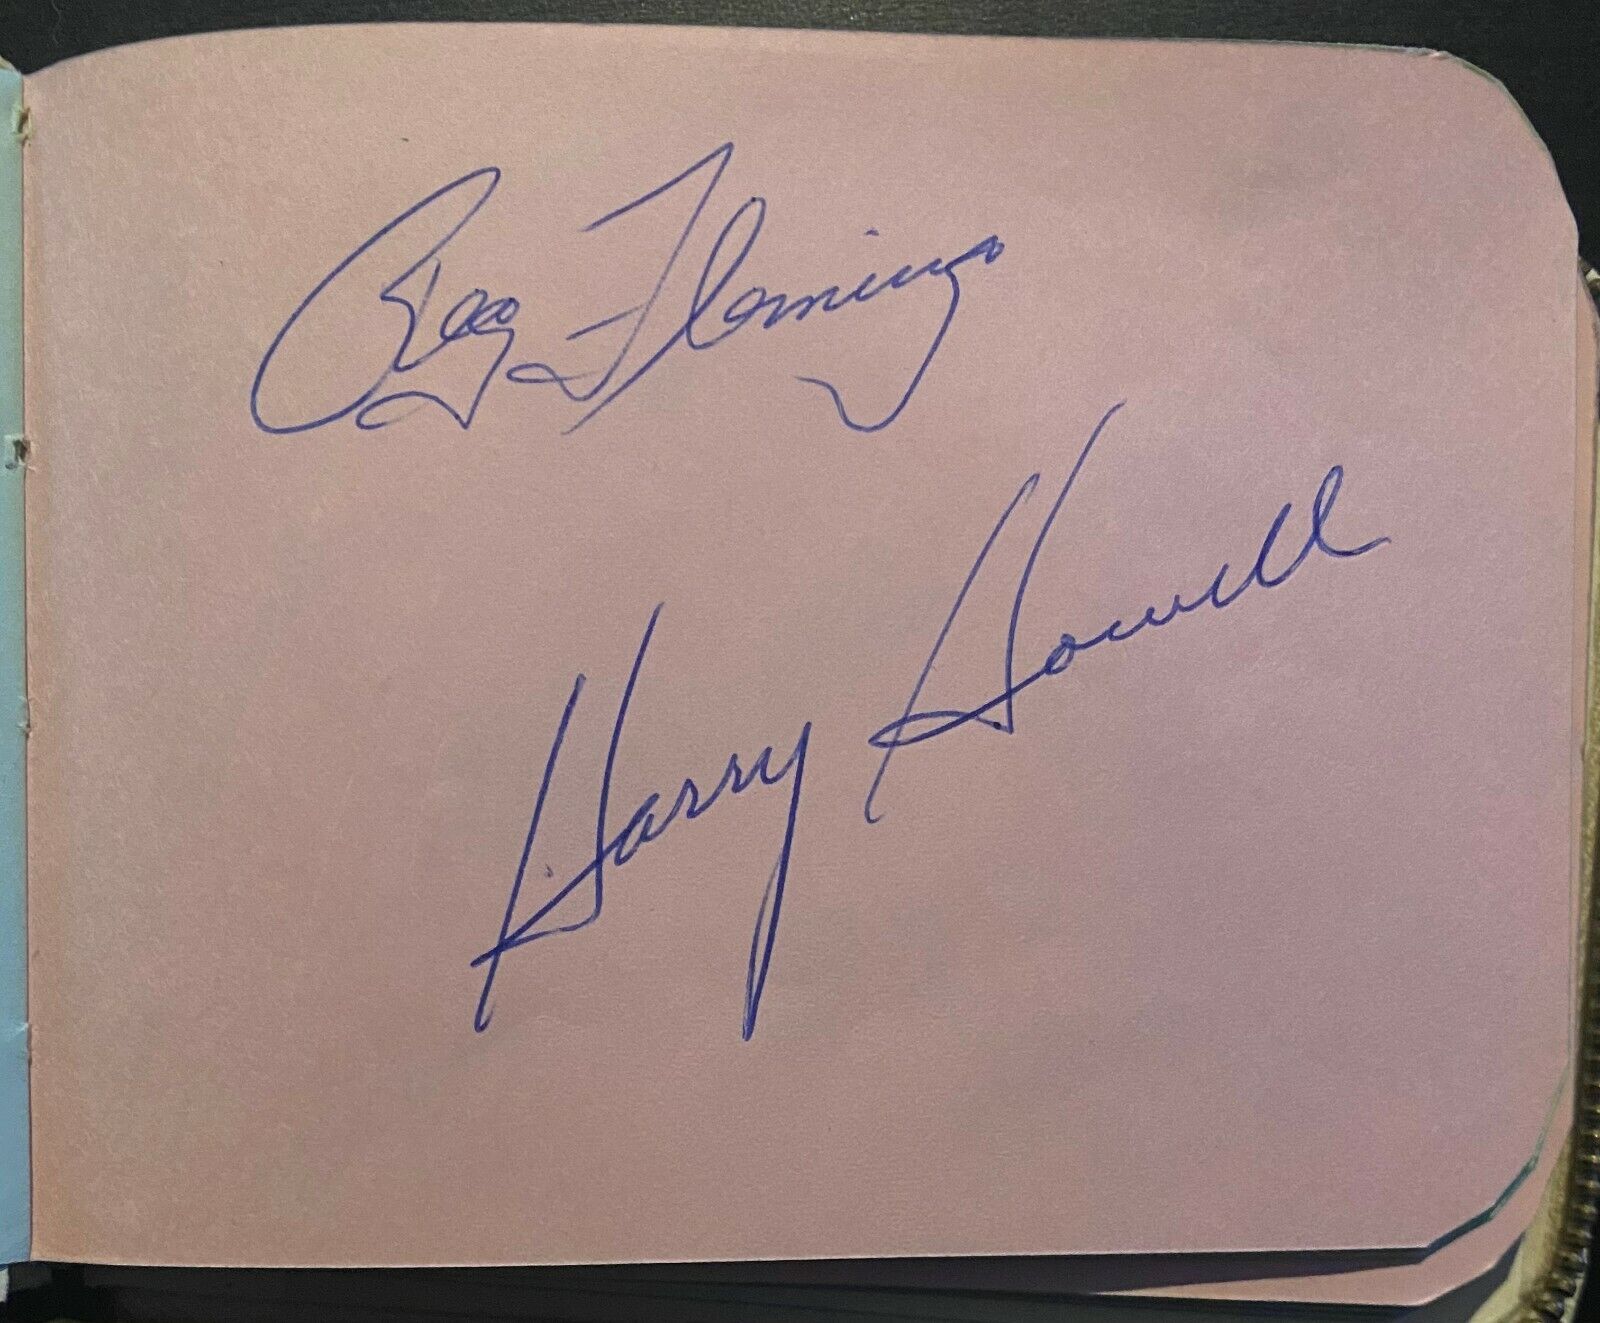 Reg Fleming
Harry Howell